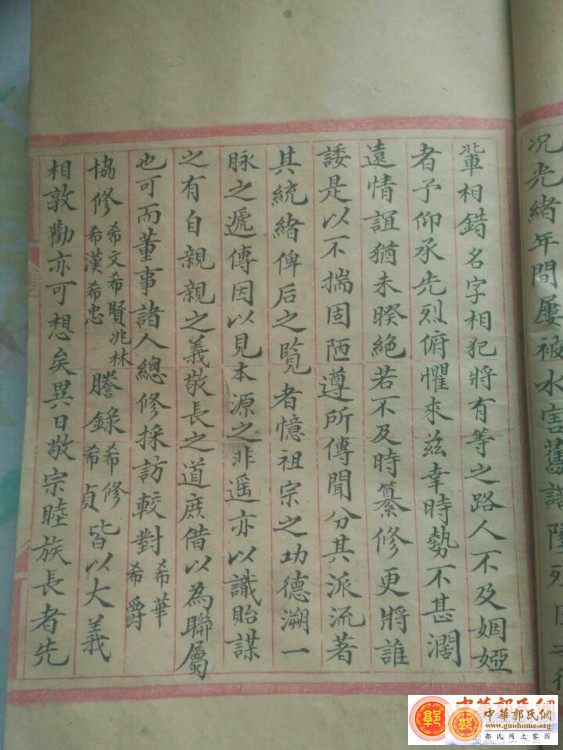 况光緒年間屢被水害舊譜
輩相錯名字相犯將有等之路人不及姻婭
者予仰承先烈俯懼來兹幸時勢不甚濶
遠情誼猶未睽絶若不及時纂修更將誰
諉是以不揣固陋遵所傳聞分其派流著
其統緒俾后之覧者憶祖宗之功德溯一
脉之遞傳因以見本源之非遥亦以識貽謀
之有自親親之義敬長之道庶借以為聯屬
也可而董事諸人總修採訪較對希華希爵
協修希文希賢兆林希漢希忠謄錄希修希貞皆以大義
相敦勸亦可想矣異日敬宗睦族長者先
中華郭氏網
郭
中華郭氏網
www.guohome.org
郭氏网上家園